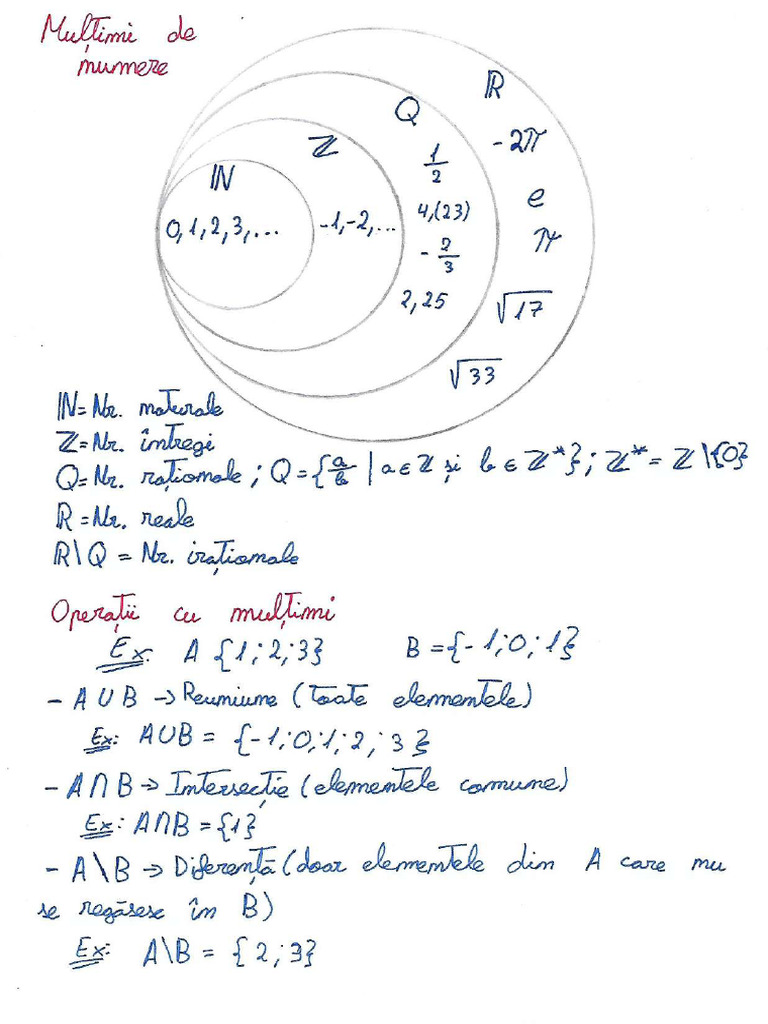 Mulțimi de
numere
ℝ
Q
-2π
ℤ
1/2
ℕ
e
4,(23)
0,1,2,3,...
-1,-2,...
π
-2/3
2,25
√17
√33
ℕ=Nr. naturale
ℤ=Nr. întregi
Q=Nr. raționale ; Q={a/b | a∈ℤ și b∈ℤ*}; ℤ*=ℤ\{0}
ℝ=Nr. reale
ℝ\Q = Nr. iraționale
Operații cu mulțimi
Ex: A {1;2;3} B={-1;0;1}
- A∪B → Reuniune (toate elementele)
Ex: A∪B = {-1;0;1;2;3}
- A∩B → Intersecție (elementele comune)
Ex: A∩B={1}
- A\B → Diferență (doar elementele din A care nu
se regăsesc în B)
Ex: A\B = {2;3}